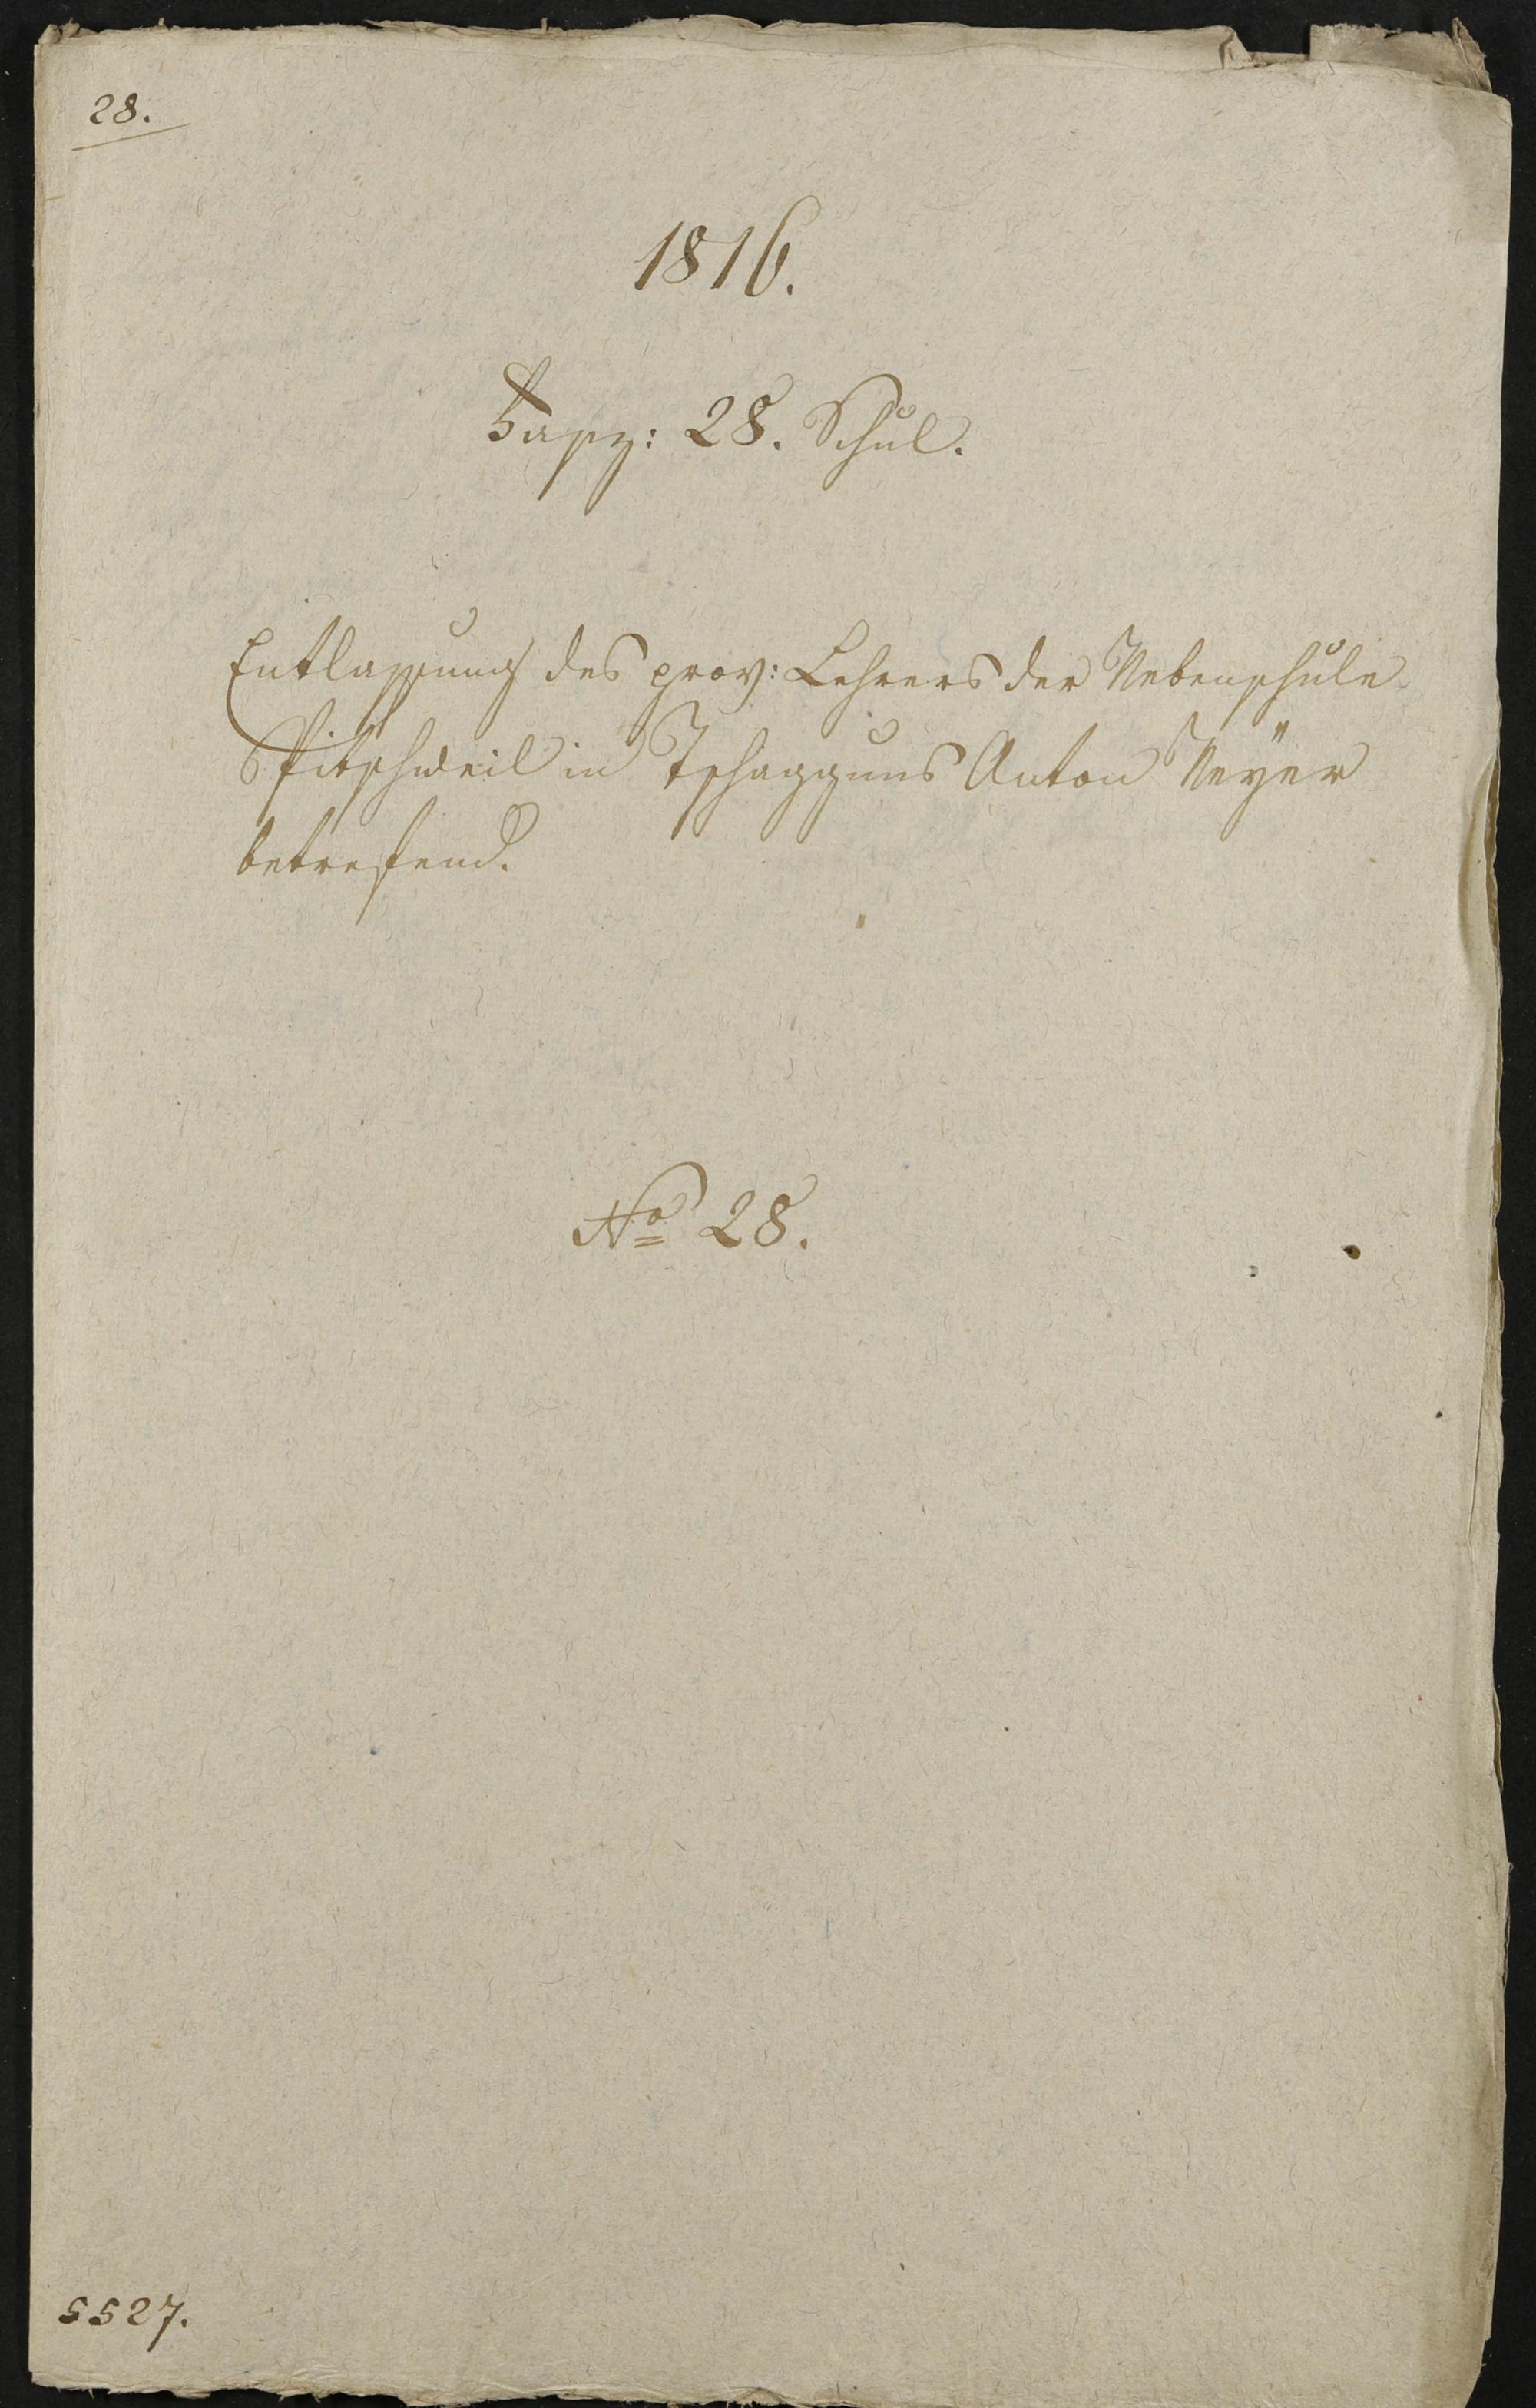 28.
1816.
Fasz: 28. Schul.
Entlassung des prov: Lehrers der Nebenschule
Bitschweil in Tschagguns Anton Neÿer
betrefend.
No 28.
5527.